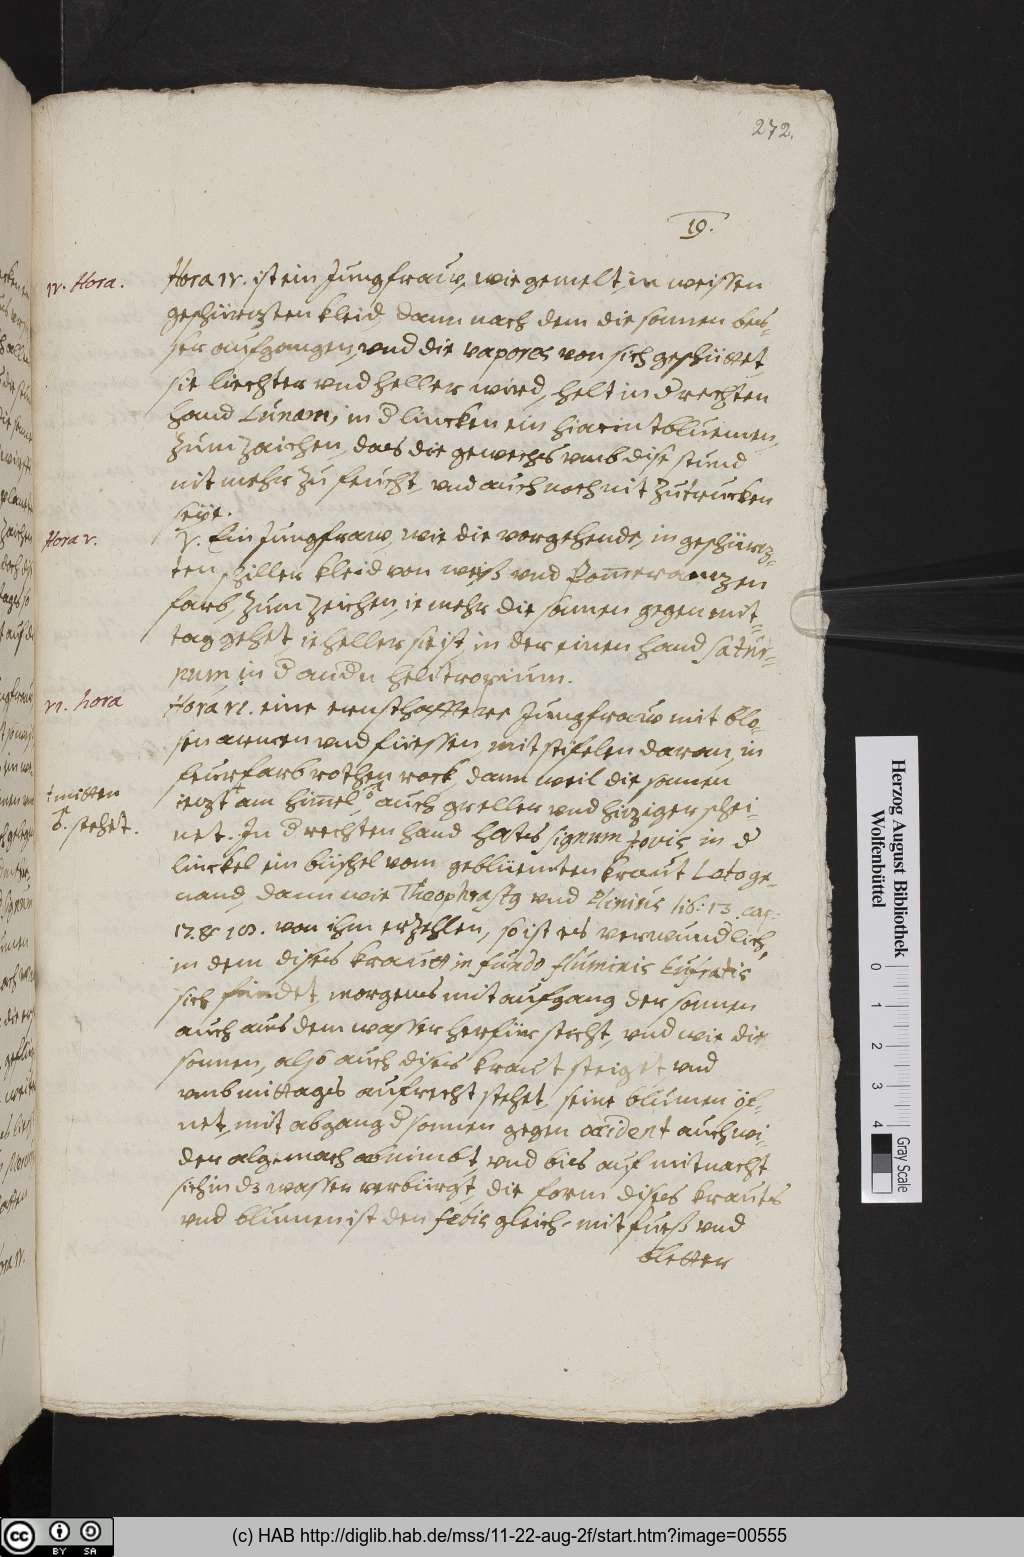 272.
19.
IV. Hora.
Hora IV. ist ein Jungfrauw, wie gemelt, in weissen
geschürtzten kleid, dann nach dem die sonnen bes-
ser aufgangen, vnd die vapores von sich geschüttet,
sie liechter vnd heller wird, helt in d rechten
hand Lunam, in d lincken ein hiacintbluemen,
zum zaichen, das die gewechs vmb dise stund
nit mehr zu feucht, vnd auch noch nit zu trucken
seye.
Hora V.
V. Ein Jungfraw, wie die vorgehende, in geschürtz-
ten schiller kleid von weiß vnd Pomerantzen
farb, zum zeichen, ie mehr die sonnen gegen mit-
tag gehet ie heller sie ist, in der einen hand Satur-
num in d andn helitropium.
VI. hora
Hora VI. eine ernsthafftere Jungfraw mit blo-
sen armen vnd füessen, mit stifelen daran, in
feurfarb rothen rock, dann weil die sonnen
ietzt + am himel, auch greller vnd hitziger schei-
+ mitten
stehet.
net. In d rechten hand hats signum Jovis in d
linckel ein büschel vom geblüemten kraut Loto ge-
nand, dann wie Theophrast9 vnd Plinius lib: 13. cap:
17. & 18. von ihm erzehlen, so ist es verwundlich,
in dem dises kraut in fundo fluminis Eufratis
sich findet, morgens mit aufgang der sonnen
auch aus dem wasser herfür sticht, vnd wie die
sonnen, also auch dises kraut steiget vnd
vmb mittags aufrecht stehet, seine blumen öf-
net, mit abgang d sonnen gegen occident auch wi-
der algemach abnimbt, vnd bis auf mitnacht
sich in dz wasser verbürgt, die form dises krauts
vnd blumen ist den febis gleich, mit fueß vnd
bletter
Herzog August Bibliothek
Wolfenbüttel
0 1 2 3 4
Gray Scale
cc BY SA
(c) HAB http://diglib.hab.de/mss/11-22-aug-2f/start.htm?image=00555